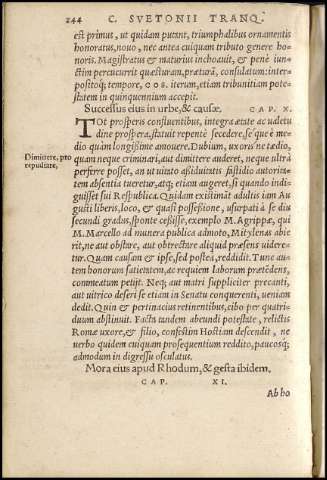 244 C. SVETONII TRANQ.
est primus, ut quidam putant, triumphalibus ornamentis
honoratus, nouo, nec antea cuiquam tributo genere ho-
noris. Magistratus & maturius inchoauit, & penè iun-
ctim percucurrit quæsturam, præturã, consulatum: inter-
positoq; tempore, COS. iterum, etiam tribunitiam pote-
statem in quinquennium accepit.
Successus eius in urbe, & causæ. CAP. X.
TOt prosperis confluentibus, integra ætate ac ualetu
dine prospera, statuit repentè secedere, se'que è me-
dio quàm longißimè amouere. Dubium, uxoris ne tædio,
Dimittere, pro
repudiare,
quam neque criminari, aut dimittere auderet, neque ultrà
perferre posset, an ut uitato aßiduitatis fastidio autorita-
tem absentia tueretur, atq; etiam augeret, si quando indi-
guisset sui Respublica. Quidam existimãt adultis iam Au-
gusti liberis, loco, & quasi poßeßione, usurpati à se diu
secundi gradus, sponte ceßisse, exemplo M. Agrippæ, qui
M. Marcello ad munera publica admoto, Mitylenas abie
rit, ne aut obstare, aut obtrectare aliquid præsens uidere-
tur. Quam causam & ipse, sed postea, reddidit. Tunc au-
tem honorum satietatem, ac requiem laborum prætẽdens,
commeatum petijt. Neq; aut matri suppliciter precanti,
aut uitrico deseri se etiam in Senatu conquerenti, ueniam
dedit. Quin & pertinacius retinentibus, cibo per quatri-
duum abstinuit. Facta tandem abeundi potestate, relictis
Romæ uxore, & filio, confestim Hostiam descendit, ne
uerbo quidem cuiquam prosequentium reddito, paucosq;
admodum in digressu osculatus.
Mora eius apud Rhodum, & gesta ibidem.
CAP. XI.
Ab ho